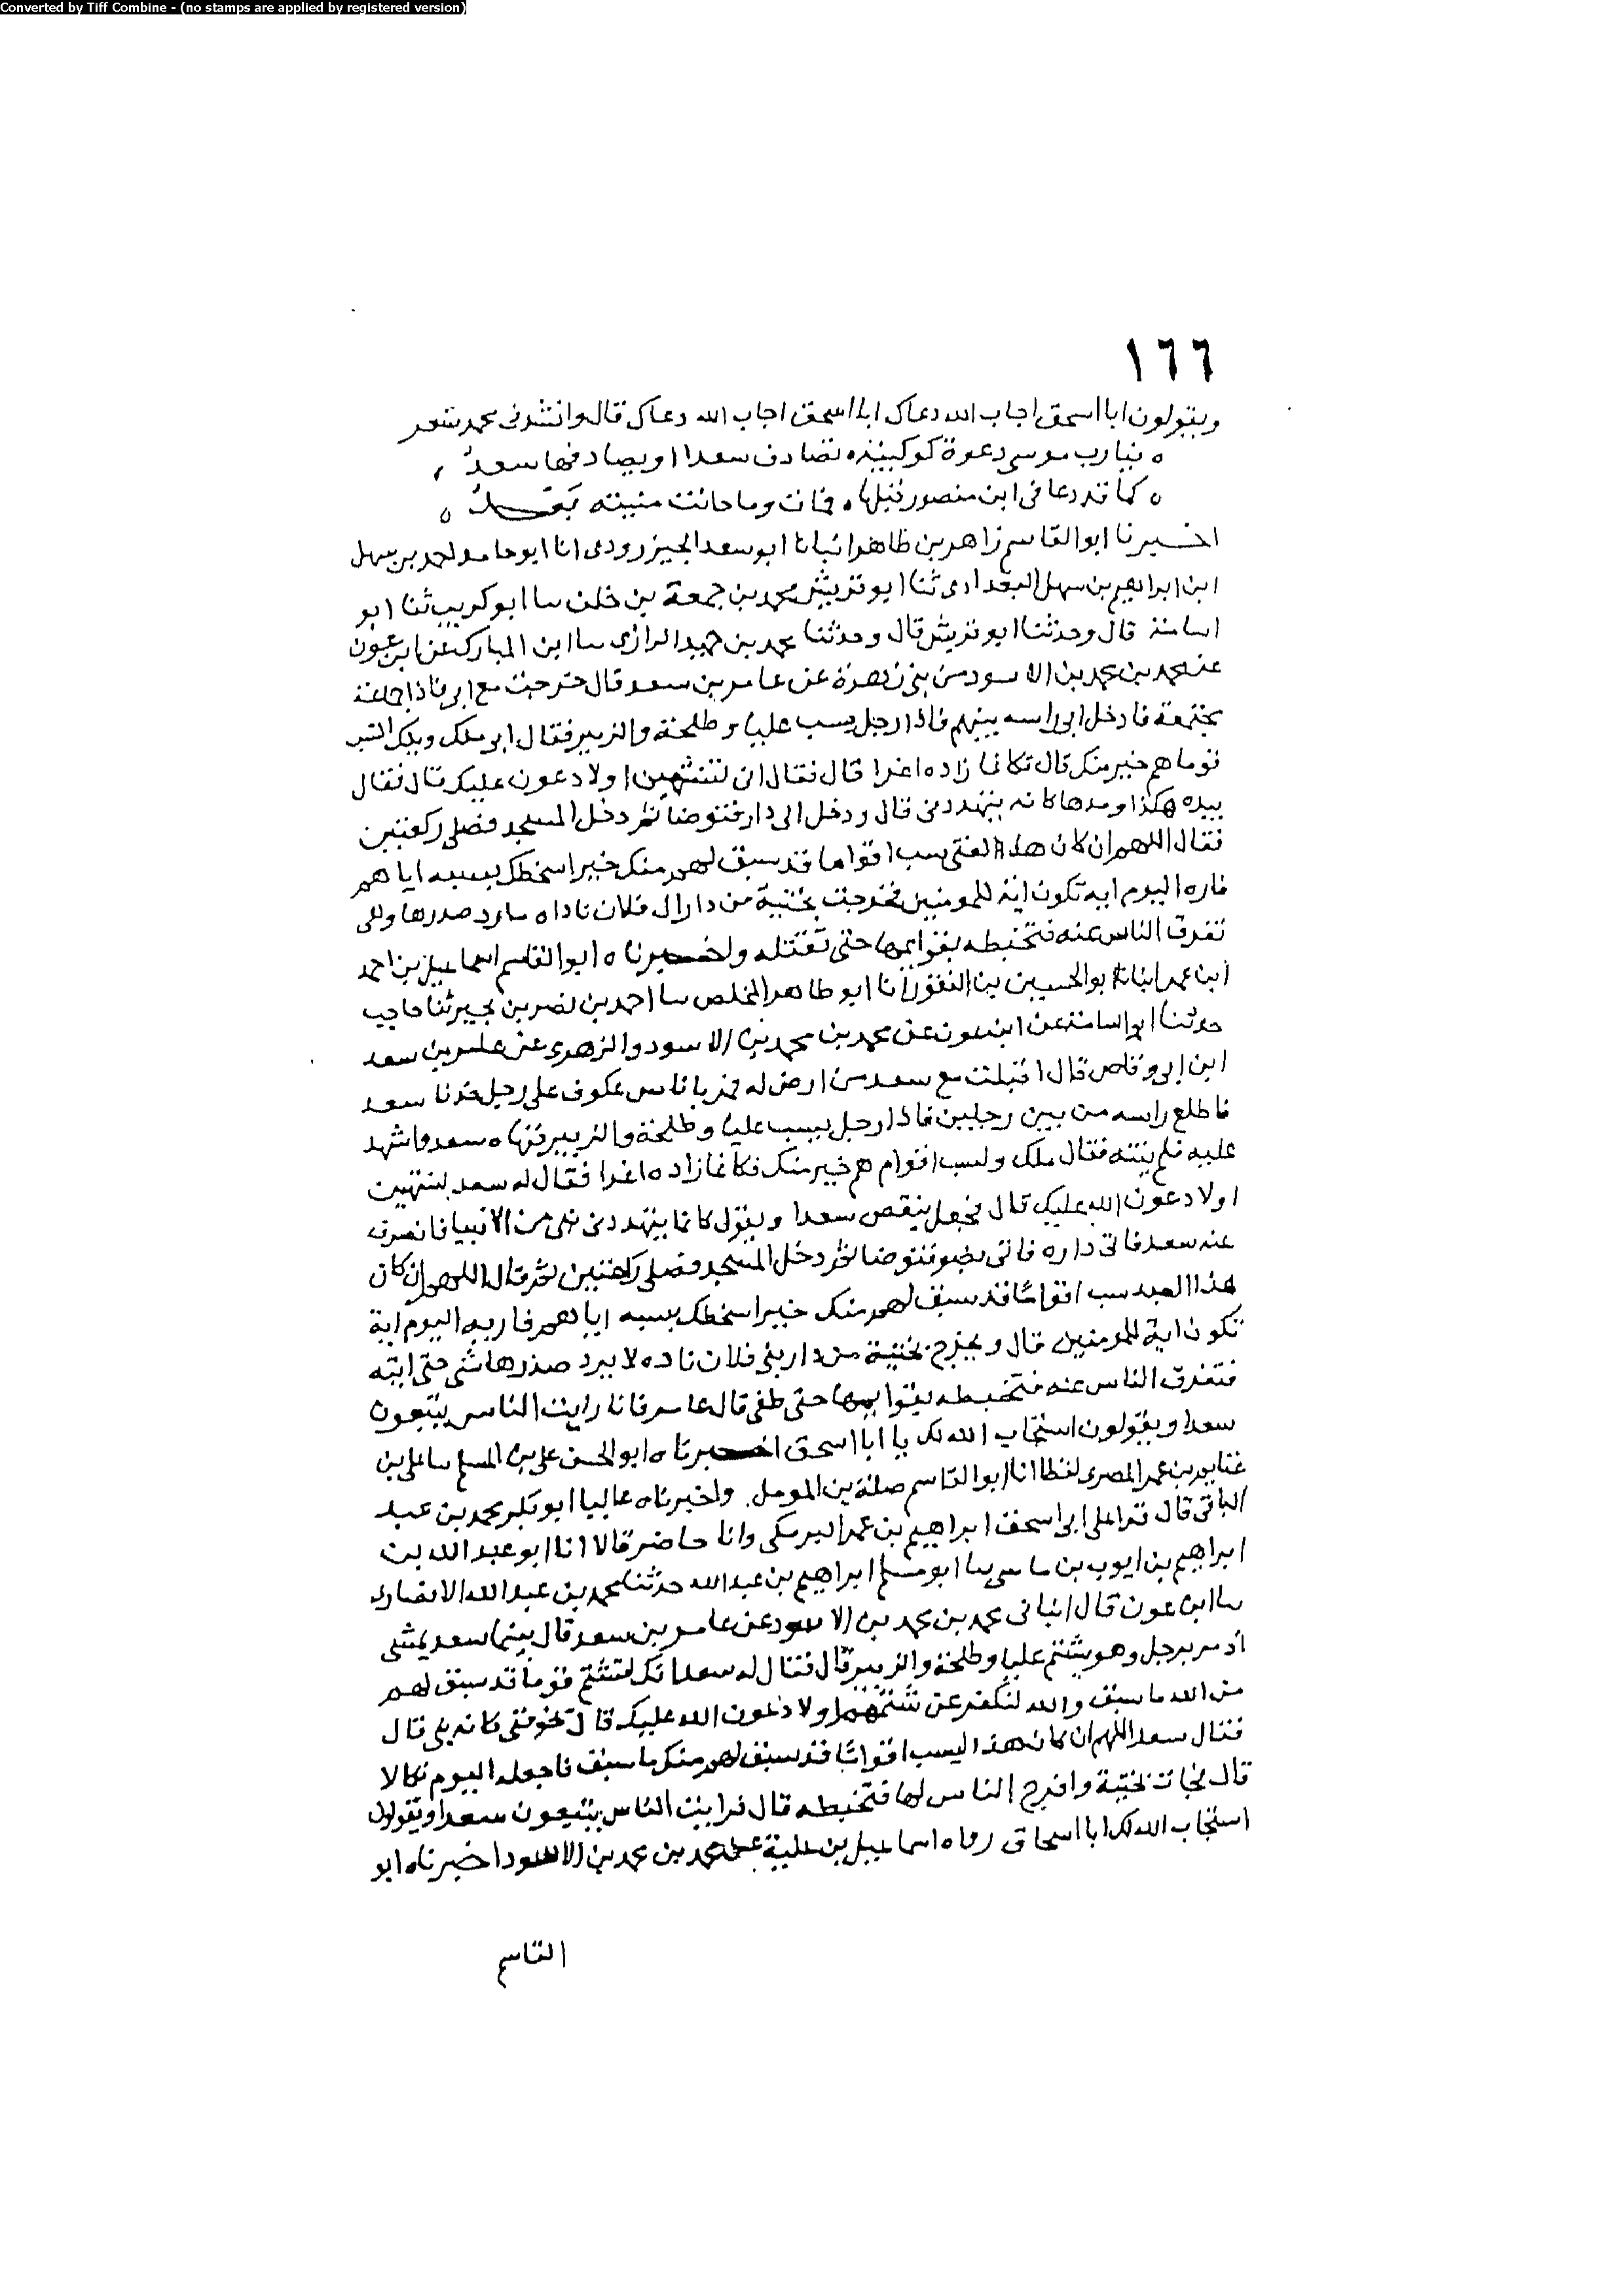 Converted by Tiff Combine - (no stamps are applied by registered version)
١٦٦
ويقولون ابا اسحق اجاب الله دعاك ابا اسحق اجاب الله دعاك قال وانشدنى محمد شعر
فيارب موسى دعوة كوكبيه تصادف سعدا او يصادفها سعد
كما قد دعا فى ابن منصور قبلها فمات وما حانت منيته بعد
اخبرنا ابو القاسم زاهر بن طاهر انبانا ابو سعد الجنزرودى انا ابو حامد احمد بن سهل
ابن ابراهيم بن سهل البغدادى ثنا ابو قريش محمد بن جمعة بن خلف سا ابو كريب ثنا ابو
اسامة قال وحدثنا ابو قريش قال وحدثنا محمد بن حميد الرازى سا ابن المبارك عن ابن عون
عن محمد بن محمد بن الاسود من بنى زهرة عن عامر بن سعد قال خرجت مع ابى فاذا جماعة
مجتمعة فادخل ابى راسه بينهم فاذا رجل يسب عليا وطلحة والزبير فقال ابى ملك ويلك اتسب
قوما هم خير منك قال فكانما زاده اغرا قال فقال ان لتنتهين اولا دعون عليك قال فقال
بيده هكذا ومدها كانه يتهددنى قال ودخل الى دار فتوضا ثم دخل المسجد فصلى ركعتين
فقال اللهم ان كان هذا الفتى يسب اقواما قد سبق لهم منك خير اسخطك بسبه اياهم
فاره اليوم ايه تكون اية للمومنين فخرجت بختية من دار ال فلان ناداه ما رد صدرها ولى
تفرق الناس عنه فتخبطه بقوايمها حتى تقتله واخبرناه ابو القاسم اسماعيل بن احمد
ابن عمر انبانا ابو الحسين بن النقور انا ابو طاهر المخلص سا احمد بن نصر بن بجير ثنا حاجب
حدثنا ابو اسامة عن ابن عون عن محمد بن محمد بن الاسود والزهرى عن عامر بن سعد
ابن ابى وقاص قال اقبلت مع سعد من ارض له فمر بناس عكوف على رجل فدنا سعد
فاطلع راسه من بين رجلين فاذا رجل يسب عليا وطلحة والزبير فنهاه سعد واشهد
عليه فلم ينته فقال ملك ولسب اقوام هم خير منك فكانما زاده اغرا فقال له سعد لتنتهين
اولا دعون الله عليك قال فجعل ينقص سعدا ويقول كانما يتهددنى نبى من الانبيا فانصرف
عنه سعد فاتى داره فاتى بضو فتوضا ثم دخل المسجد فصلى ركعتين ثم قال اللهم ان كان
هذا العبد سب اقواما قد سبق لهم منك خير اسخطك بسبه اياهم فاريه اليوم اية
تكون اية للمومنين قال ويخرج بختية من دار بنى فلان ناده لا يرد صدرها شى حتى اتته
فتفرق الناس عنه فتخبطه بقوايمها حتى طفى قال عامر فانا رايت الناس يتبعون
سعدا ويقولون استجاب الله لك يا ابا اسحق اخبرناه ابو الحسن على بن المسلم سا على بن
بن عمر المصرى لفظا انا ابو القاسم صدقة بن المومل. واخبرناه عاليا ابو بكر محمد بن عبد
الباقى قال قرا على ابى اسحق ابراهيم بن عمر البرمكى وانا حاضر قالا انا ابو عبد الله بن
ابراهيم بن ايوب بن ماسى سا ابو مسلم ابراهيم بن عبد الله حدثنا محمد بن عبد الله الانصارى
سا ابن عون قال انبانى محمد بن محمد بن الاسود عن عامر بن سعد قال بينما سعد يمشى
اذ مر برجل وهو يشتم عليا وطلحة والزبير قال فقال له سعد انك لتشتم قوما قد سبق لهم
من الله ما سبق والله لتكفن عن شتمهم اولا دعون الله عليك قال تخوفنى كانه نبى قال
فقال سعد اللهم ان كان هذا ليسب اقواما قد سبق لهم منك ما سبق فاجعله اليوم نكالا
قال فجات بختية وافرج الناس لها فتخبطه قال فرايت الناس يتبعون سعدا ويقولون
استجاب الله لك ابا اسحاق رواه اسماعيل بن علية عن محمد بن محمد بن الاسود اخبرناه ابو
القاسم